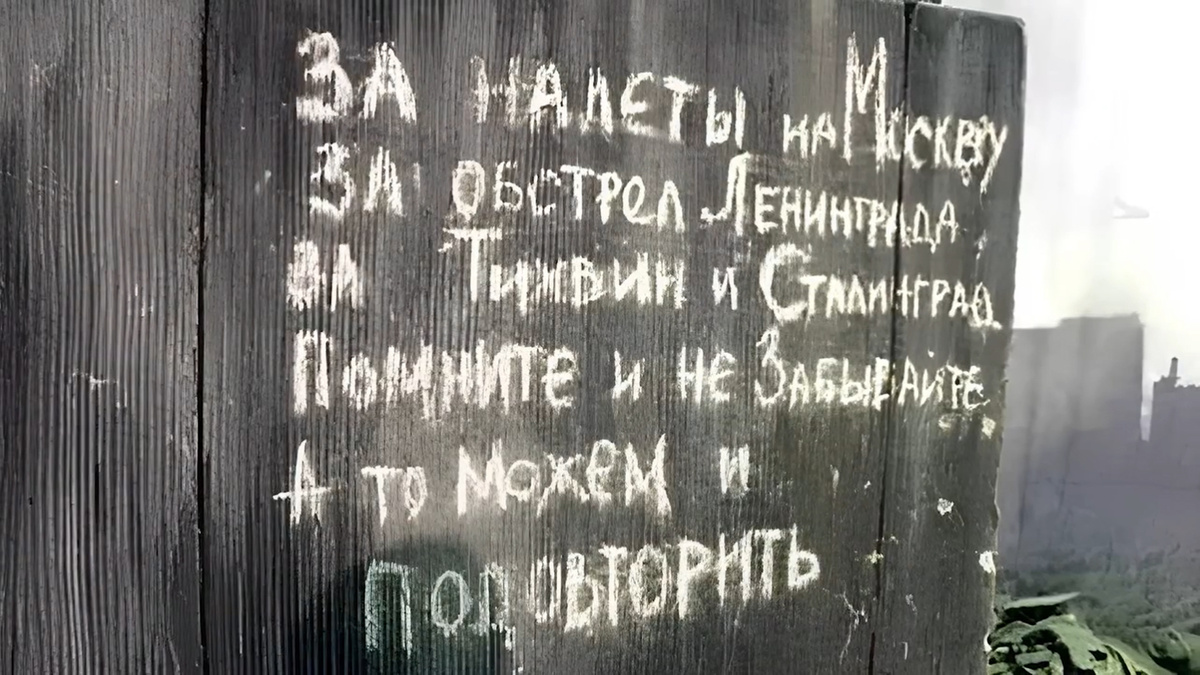 ЗА НАЛЕТЫ НА МОСКВУ
ЗА ОБСТРЕЛ ЛЕНИНГРАДА
ЗА ТИХВИН И СТАЛИНГРАД
ПОМНИТЕ И НЕ ЗАБЫВАЙТЕ
А ТО МОЖЕМ И